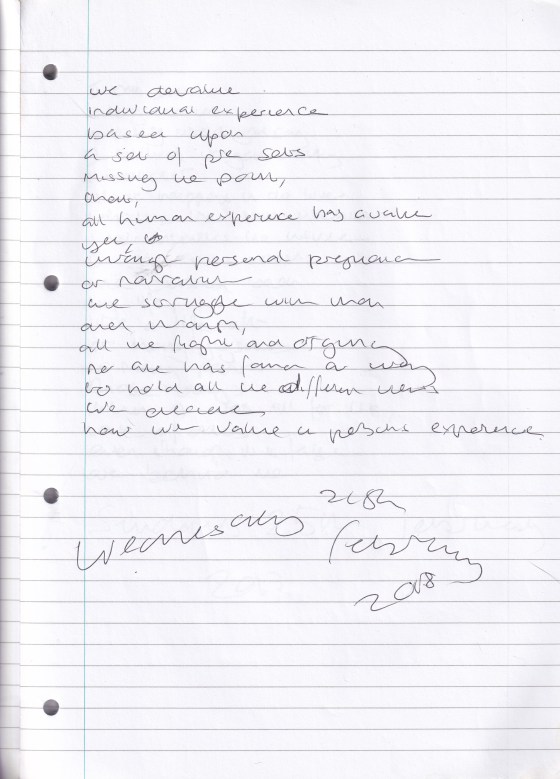 we devalue
individual experience
based upon
a set of pre sets
missing the point,
that,
all human experience has a value
yet,
through personal
or narrative
we struggle with that
and though,
all the fight and arguing
no one has found a way
to hold all the different views
we decide
how we value a persons experience
Wednesday 28th
February
2018